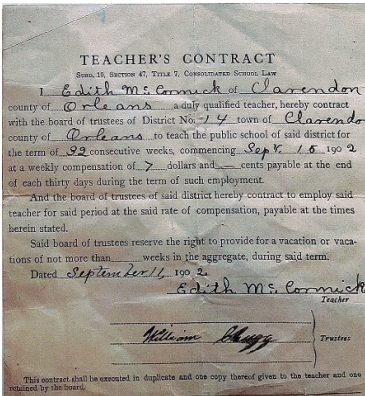 TEACHER'S CONTRACT
SUBD. 10, SECTION 47, TITLE 7, CONSOLIDATED SCHOOL LAW
I Edith McCormick of Clarendon
county of Orleans a duly qualified teacher, hereby contract
with the board of trustees of District No. 14 town of Clarendo
county of Orleans to teach the public school of said district for
the term of 32 consecutive weeks, commencing Sept. 15 1902
at a weekly compensation of 7 dollars and — cents payable at the end
of each thirty days during the term of such employment.
And the board of trustees of said district hereby contract to employ said
teacher for said period at the said rate of compensation, payable at the times
herein stated.
Said board of trustees reserve the right to provide for a vacation or vaca-
tions of not more than ____ weeks in the aggregate, during said term.
Dated September 11, 1902.
Edith McCormick
Teacher
William
Trustees
This contract shall be executed in duplicate and one copy thereof given to the teacher and one
retained by the board.